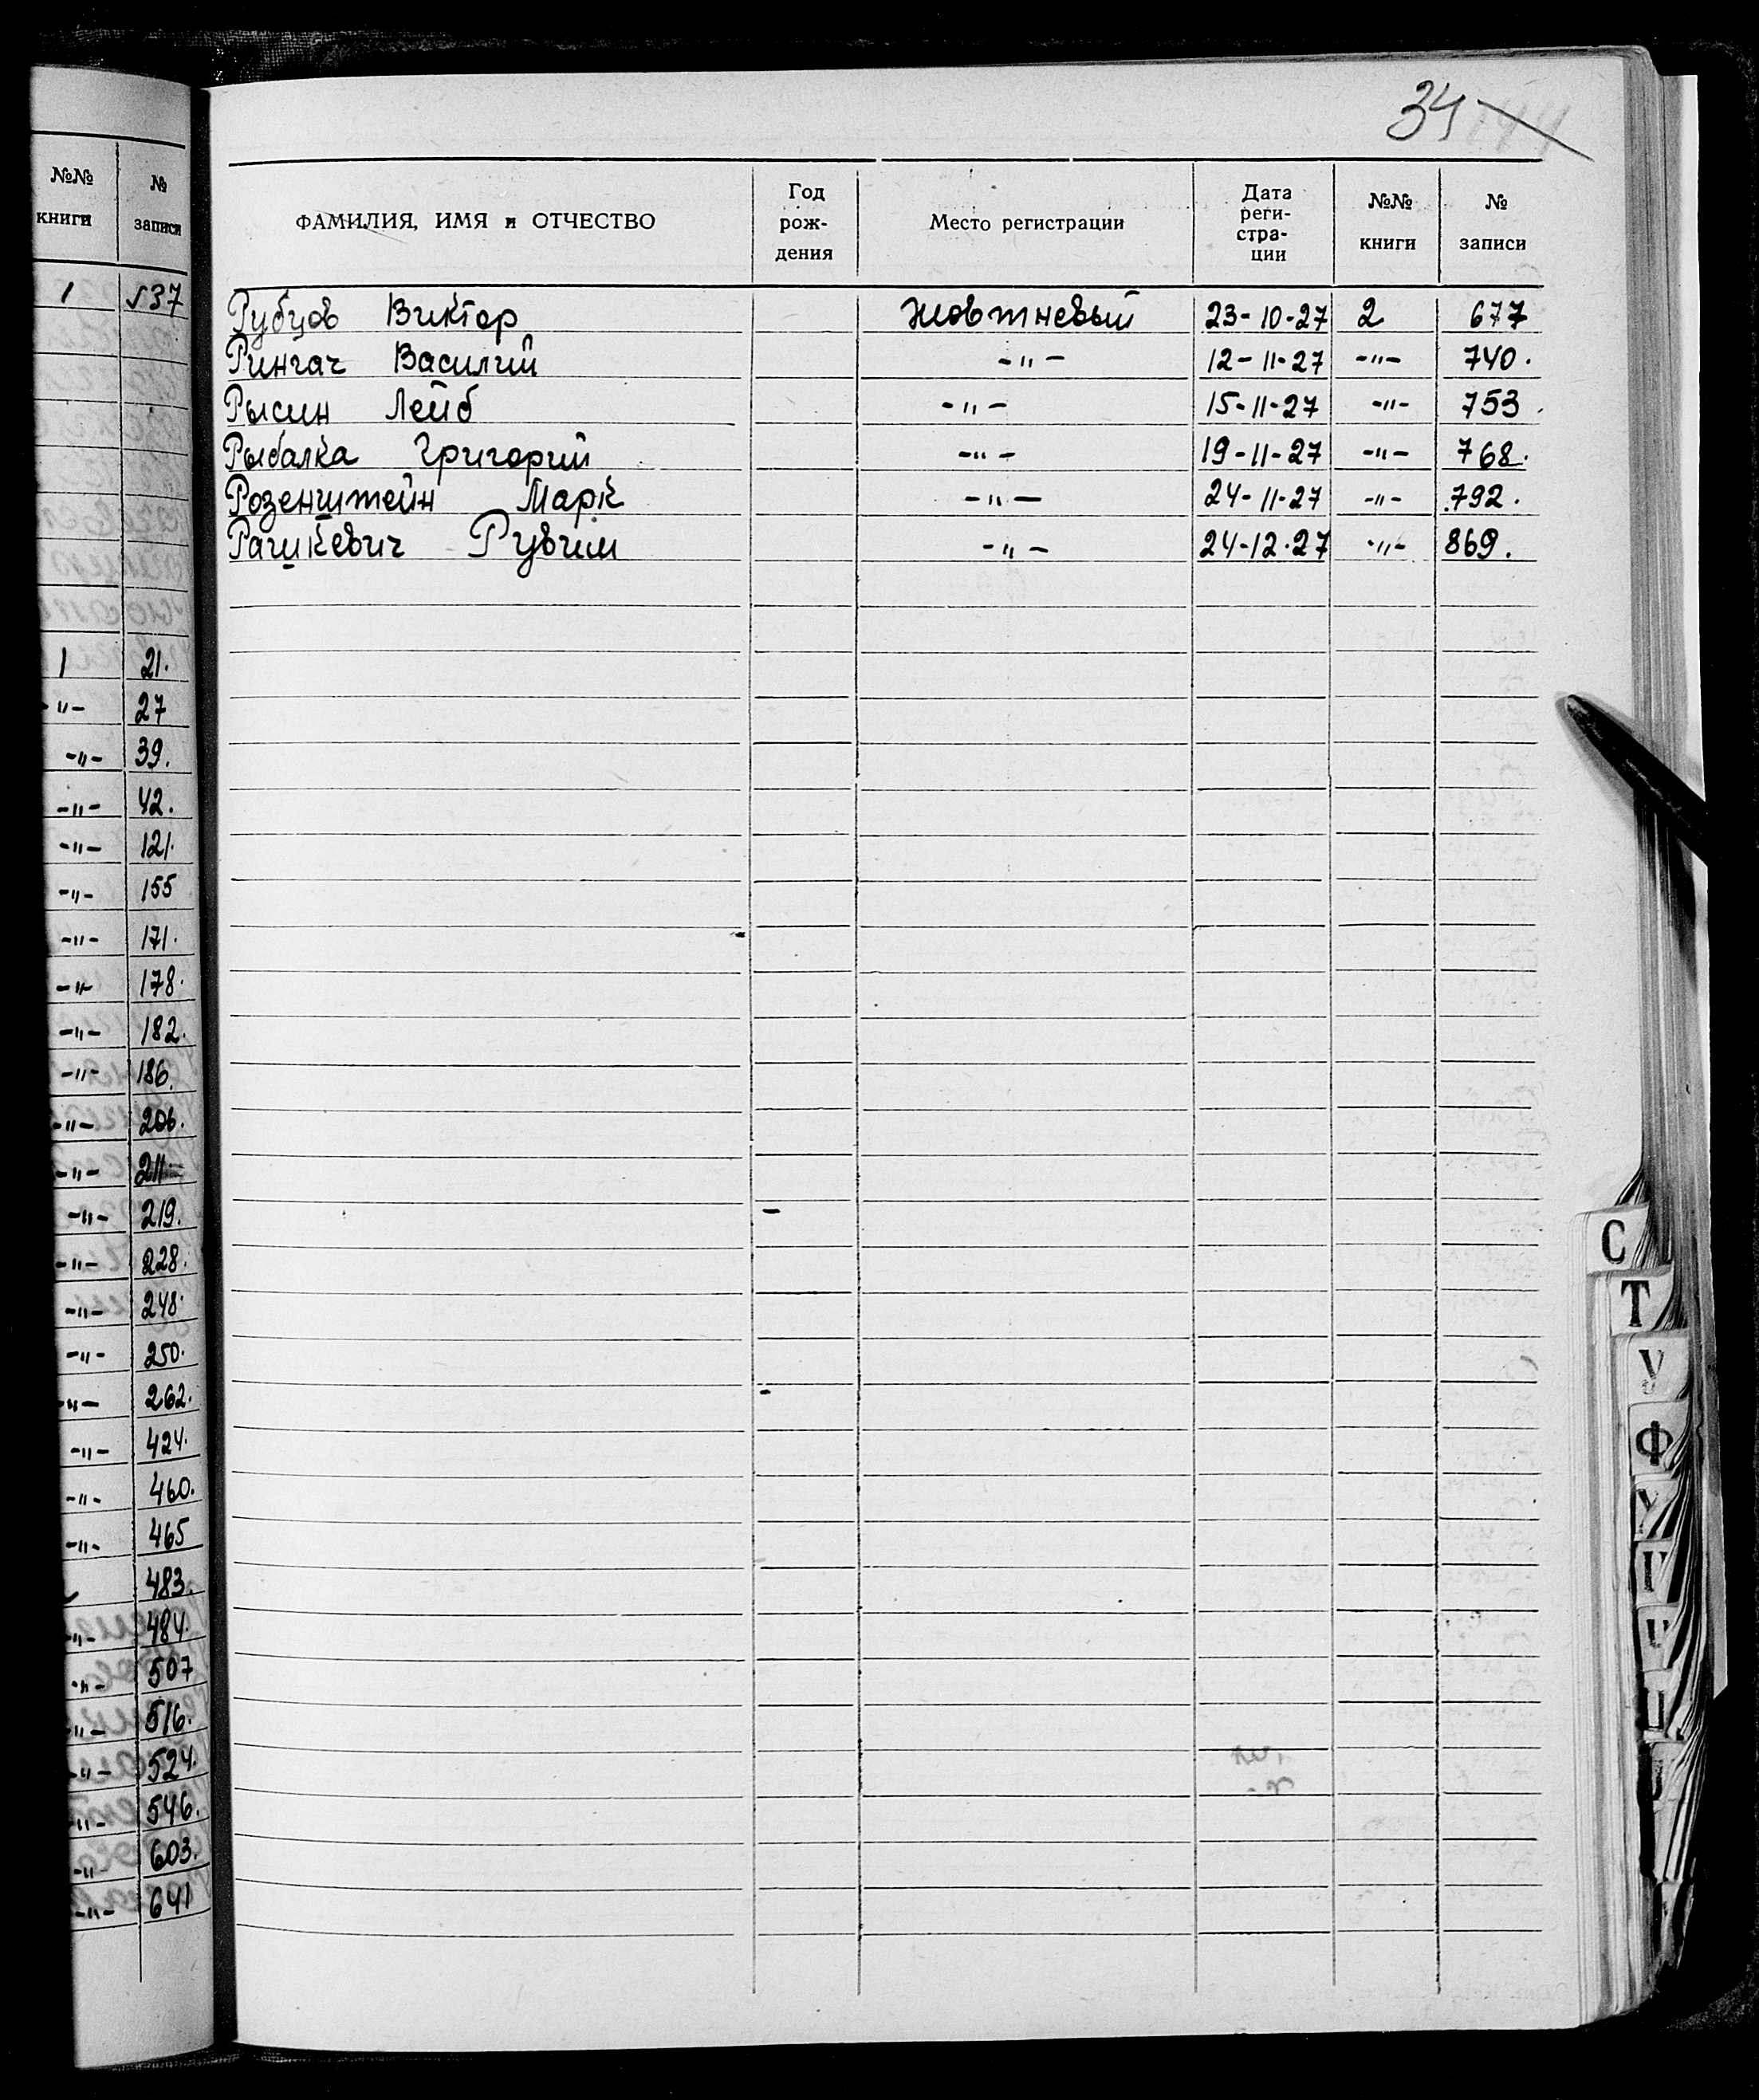 34
№№ книги № записи
1 537
1 21.
-"- 27
-"- 39.
-"- 42.
-"- 121.
-"- 155
-"- 171.
-"- 178.
-"- 182.
-"- 186.
-"- 206.
-"- 211
-"- 219.
-"- 228.
-"- 248.
-"- 250.
-"- 262.
-"- 424.
-"- 460.
-"- 465
483.
-"- 484.
-"- 507
-"- 516.
-"- 524.
-"- 546.
-"- 603.
-"- 641
ФАМИЛИЯ, ИМЯ и ОТЧЕСТВО Год рож- дения Место регистрации Дата реги- стра- ции №№ книги № записи
Рубцов Виктор Жовтневый 23-10-27 2 677
Рингач Василий -"- 12-11-27 -"- 740.
Рысин Лейб -"- 15-11-27 -"- 753.
Рыбалка Григорий -"- 19-11-27 -"- 768.
Розенштейн Марк -"- 24-11-27 -"- 792.
Рашкевич Рувим -"- 24-12-27 -"- 869.
С
Т
У
Ф